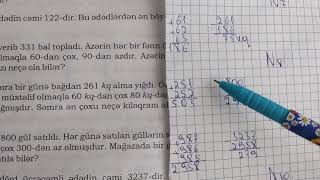 ədədin cəmi 122-dir. Bu ədədlərdən ən böy
verib 331 bal topladı. Azərin hər bir fənn
olmaqla 60-dan çox, 90-dan azdır. Azəri
zı neçə ola bilər?
ra bir günə bağdan 261 kq alma yığdı. O
müxtəlif olmaqla 60 kq-dan çox 80 kq-d
mışdır. Səmra ən çoxu neçə kiloqram al
800 gül satıldı. Hər günə satılan güllərin s
çox 300-dən az olmuşdur. Mağazada bir g
ətila bilər?
dörd üçrəqəmli ədədin cəmi 3237-dir.
N7
+61
62
186
N8
+251
252
503
800
987
986
985
2958
3237
2958
279